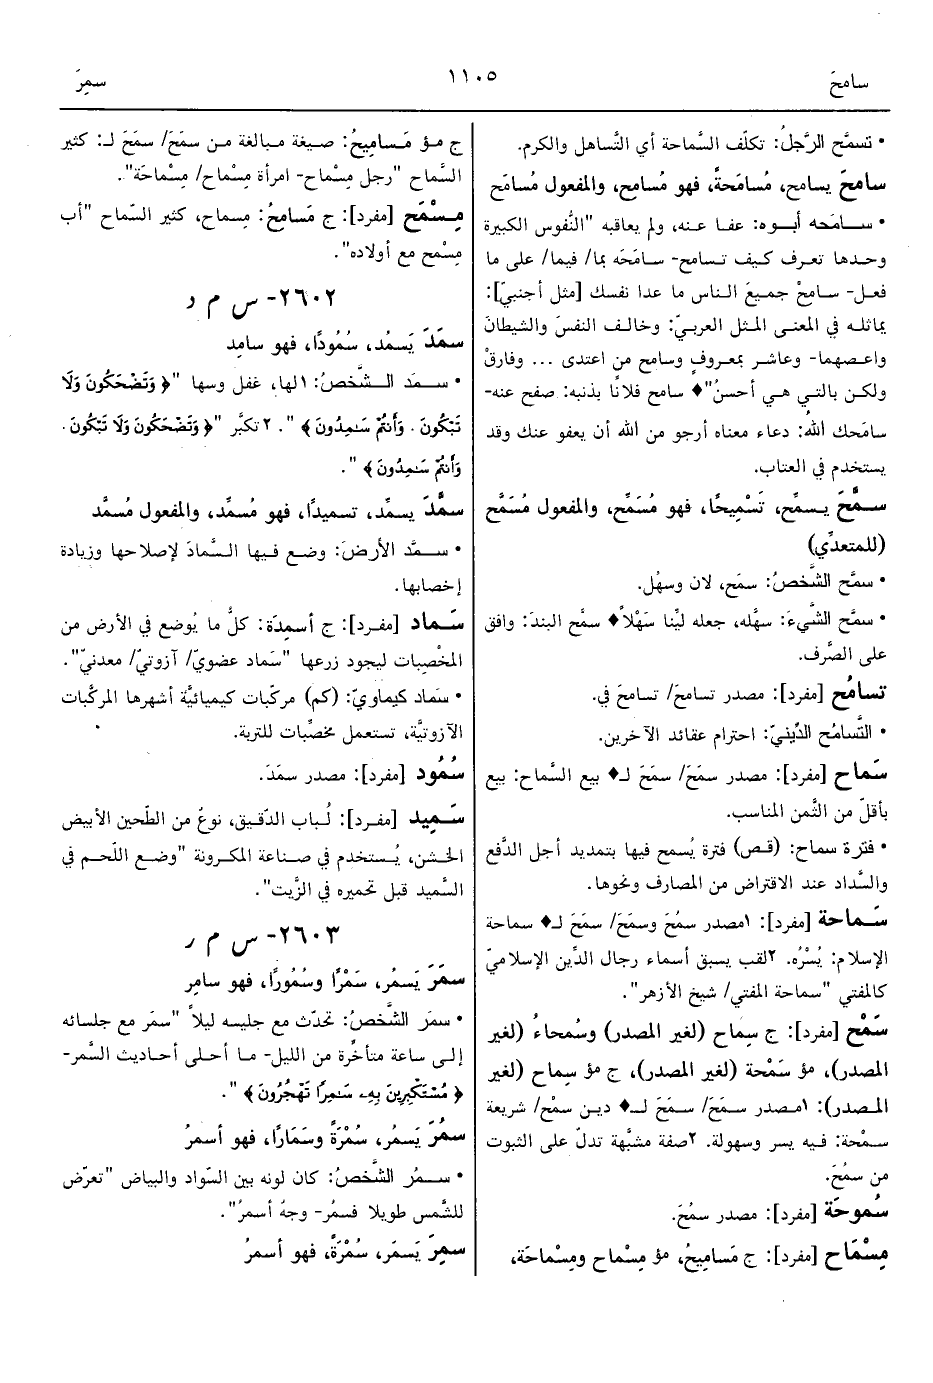 سامحَ
١١٠٥
سمِرَ
• تسمَّح الرَّجلُ: تكلّف السَّماحة أي التَّساهل والكرم.
سامحَ يسامح، مُسامَحةً، فهو مُسامِح، والمفعول مُسامَح
• سـامَحه أبـوه: عفـا عنـه، ولم يعاقبه "النُّفوس الكبيرة
وحـدها تعرف كيـف تـسامح- سـامَحَه بما/ فيما/ على ما
فعل- سامِحْ جميعَ الناس ما عدا نفسك [مثل أجنبيّ]:
يماثلـه في المعنـى المـثل العربيّ: وخـالف النفسَ والشيطانَ
واعـصهما- وعاشـر بمعـروفٍ وسامح من اعتدى ... وفارقْ
ولكـن بالتي هـي أحسنُ"♦ سامح فلانًا بذنبه: صفح عنه-
سامَحك اللهُ: دعاء معناه أرجو من الله أن يعفو عنك وقد
يستخدم في العتاب.
سـمَّحَ يـسمِّح، تَسْمِيحًا، فهو مُسَمِّح، والمفعول مُسَمَّح
(للمتعدِّي)
• سمَّح الشَّخصُ: سمَح، لان وسهُل.
• سمَّح الشَّيءَ: سهَّله، جعله ليِّنا سَهْلاً♦ سمَّح البندَ: وافق
على الصَّرف.
تسامُح [مفرد]: مصدر تسامحَ/ تسامحَ في.
• التَّسامُح الدِّينيّ: احترام عقائد الآخرين.
سَماح [مفرد]: مصدر سمَحَ/ سمَحَ لـ♦ بيع السَّماح: بيع
بأقلّ من الثَّمن المناسب.
• فترة سماح: (قـص) فترة يُسمح فيها بتمديد أجل الدَّفع
والسَّداد عند الاقتراض من المصارف ونحوها.
سَماحة [مفرد]: ١مصدر سمُحَ وسمَحَ/ سمَحَ لـ♦ سماحة
الإسلام: يُسْرُه. ٢لقب يسبق أسماء رجال الدِّين الإسلاميّ
كالمفتي "سماحة المفتي/ شيخ الأزهر".
سَمْح [مفرد]: ج سِماح (لغير المصدر) وسُمحاءُ (لغير
المصدر)، مؤ سَمْحة (لغير المصدر)، ج مؤ سِماح (لغير
المصدر): ١مـصدر سـمَحَ/ سـمَحَ لـ♦ ديـن سمْح/ شريعة
سـمْحة: فيـه يسر وسهولة. ٢صفة مشبَّهة تدلّ على الثبوت
من سمُحَ.
سُموحَة [مفرد]: مصدر سمُحَ.
مِسْمَاح [مفرد]: ج مَساميحُ، مؤ مِسْماح ومِسْماحَة،
ج مؤ مَـساميحُ: صـيغة مـبالغة مـن سمَحَ/ سمَحَ لـ: كثير
السَّماح "رجل مِسْماح- امرأة مِسْماح/ مِسْماحَة".
مِـسْمَح [مفرد]: ج مَسامِحُ: مِسماح، كثير السَّماح "أب
مِسْمح مع أولاده".
٢٦٠٢- س م د
سمَدَ يَسمُد، سُمُودًا، فهو سامِد
• سـمَد الـشَّخصُ: ١لها، غفل وسها "﴿ وَتَضْحَكُونَ وَلَا
تَبْكُونَ . وَأَنتُمْ سَـٰمِدُونَ ﴾ ". ٢تكبَّر "﴿ وَتَضْحَكُونَ وَلَا تَبْكُونَ .
وَأَنتُمْ سَـٰمِدُونَ ﴾ ".
سمَّدَ يسمِّد، تسميدًا، فهو مُسمِّد، والمفعول مُسمَّد
• سـمَّد الأرضَ: وضع فـيها السَّمادَ لإصلاحها وزيادة
إخصابها.
سَـماد [مفـرد]: ج أسمِدَة: كلُّ ما يُوضع في الأرض من
المخْصِبات ليجود زرعها "سَماد عضويّ/ آزوتيّ/ معدنيّ".
• سَماد كيماويّ: (كم) مركّبات كيميائيَّة أشهرها المركَّبات
الآزوتيَّة، تستعمل مخصِّبات للتربة.
سُمُود [مفرد]: مصدر سمَدَ.
سَـمِيد [مفرد]: لُباب الدَّقيق، نوعٌ من الطّحين الأبيض
الخـشن، يُـستخدم في صـناعة المكـرونة "وضـع اللَّحـم في
السَّميد قبل تحميره في الزَّيت".
٢٦٠٣- س م ر
سمَرَ يَسمُر، سَمْرًا وسُمُورًا، فهو سامِر
• سمَرَ الشَّخصُ: تحدّث مع جليسه ليلاً "سمَر مع جلسائه
إلى ساعة متأخّرة من الليل- ما أحلى أحاديث السَّمر-
﴿ مُسْتَكْبِرِينَ بِهِۦ سَـٰمِرًا تَهْجُرُونَ ﴾ ".
سمُرَ يَسمُر، سُمْرَةً وسَمَارًا، فهو أسمرُ
• سـمُر الشَّخصُ: كان لونه بين السَّواد والبياض "تعرّض
للشَّمس طويلا فسمُر- وجهٌ أسمرُ".
سمِرَ يَسمَر، سُمْرَةً، فهو أسمرُ